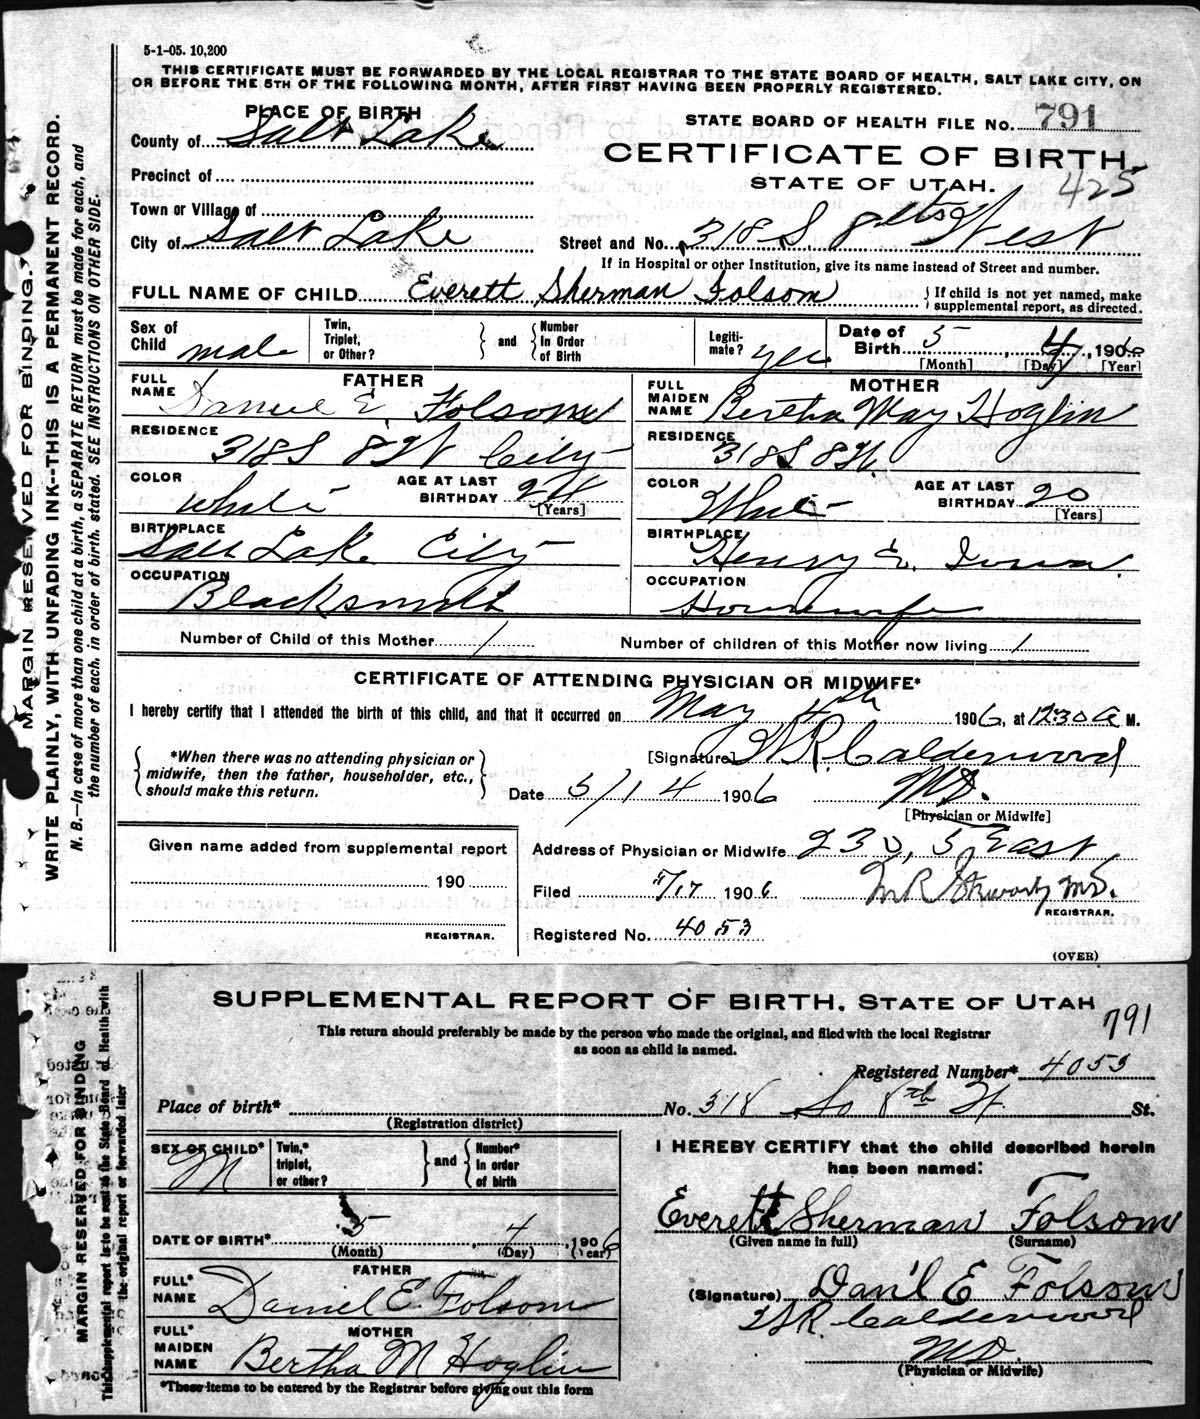 5-1-05. 10,200
THIS CERTIFICATE MUST BE FORWARDED BY THE LOCAL REGISTRAR TO THE STATE BOARD OF HEALTH, SALT LAKE CITY, ON
OR BEFORE THE 5TH OF THE FOLLOWING MONTH, AFTER FIRST HAVING BEEN PROPERLY REGISTERED.
PLACE OF BIRTH
STATE BOARD OF HEALTH FILE No. 791
County of Salt Lake
CERTIFICATE OF BIRTH.
Precinct of
STATE OF UTAH. 425
Town or Village of
City of Salt Lake Street and No. 318 S. 8th West
If in Hospital or other Institution, give its name instead of Street and number.
FULL NAME OF CHILD Everett Sherman Folsom { If child is not yet named, make supplemental report, as directed.
Sex of Child male Twin, Triplet, or Other? } and { Number In Order of Birth Legiti-mate? yes Date of Birth 5, 4, 1906
[Month] [Day] [Year]
FATHER MOTHER
FULL NAME Daniel E. Folsom FULL MAIDEN NAME Bertha May Hoglin
RESIDENCE 318 S 8 W City RESIDENCE 318 S 8 W.
COLOR White AGE AT LAST BIRTHDAY 24 [Years] COLOR White AGE AT LAST BIRTHDAY 20 [Years]
BIRTHPLACE Salt Lake City BIRTHPLACE Henry Iowa.
OCCUPATION Blacksmith OCCUPATION Housewife
Number of Child of this Mother 1 Number of children of this Mother now living 1
CERTIFICATE OF ATTENDING PHYSICIAN OR MIDWIFE*
I hereby certify that I attended the birth of this child, and that it occurred on May 4th 1906, at 1230 a M.
{ *When there was no attending physician or midwife, then the father, householder, etc., should make this return. }
[Signature] W R. Calderwood
Date 5/14 1906 MD.
[Physician or Midwife]
Given name added from supplemental report Address of Physician or Midwife 230, 5 East
190 Filed 5/17 1906 M.D.
REGISTRAR.
REGISTRAR. Registered No. 4053
(OVER)
MARGIN RESERVED FOR BINDING.
WRITE PLAINLY, WITH UNFADING INK--THIS IS A PERMANENT RECORD.
N. B.—In case of more than one child at a birth, a SEPARATE RETURN must be made for each, and
the number of each, in order of birth, stated. SEE INSTRUCTIONS ON OTHER SIDE.
SUPPLEMENTAL REPORT OF BIRTH, STATE OF UTAH
791
This return should preferably be made by the person who made the original, and filed with the local Registrar
as soon as child is named.
Registered Number* 4053
Place of birth* No. 318 So 8th W. St.
(Registration district)
SEX OF CHILD* M Twin,* triplet, or other? } and { Number* In order of birth
I HEREBY CERTIFY that the child described herein
has been named:
DATE OF BIRTH* 5, 4, 1906 Everett Sherman Folsom
(Month) (Day) (Year) (Given name in full) (Surname)
FATHER
FULL* NAME Daniel E. Folsom (Signature) Dan'l E Folsom
W R. Calderwood
MOTHER
FULL* MAIDEN NAME Bertha M Hoglin MD.
(Physician or Midwife)
*These items to be entered by the Registrar before giving out this form
MARGIN RESERVED FOR BINDING
This supplemental report is to be sent to the State Board of Health with
the original report or forwarded later